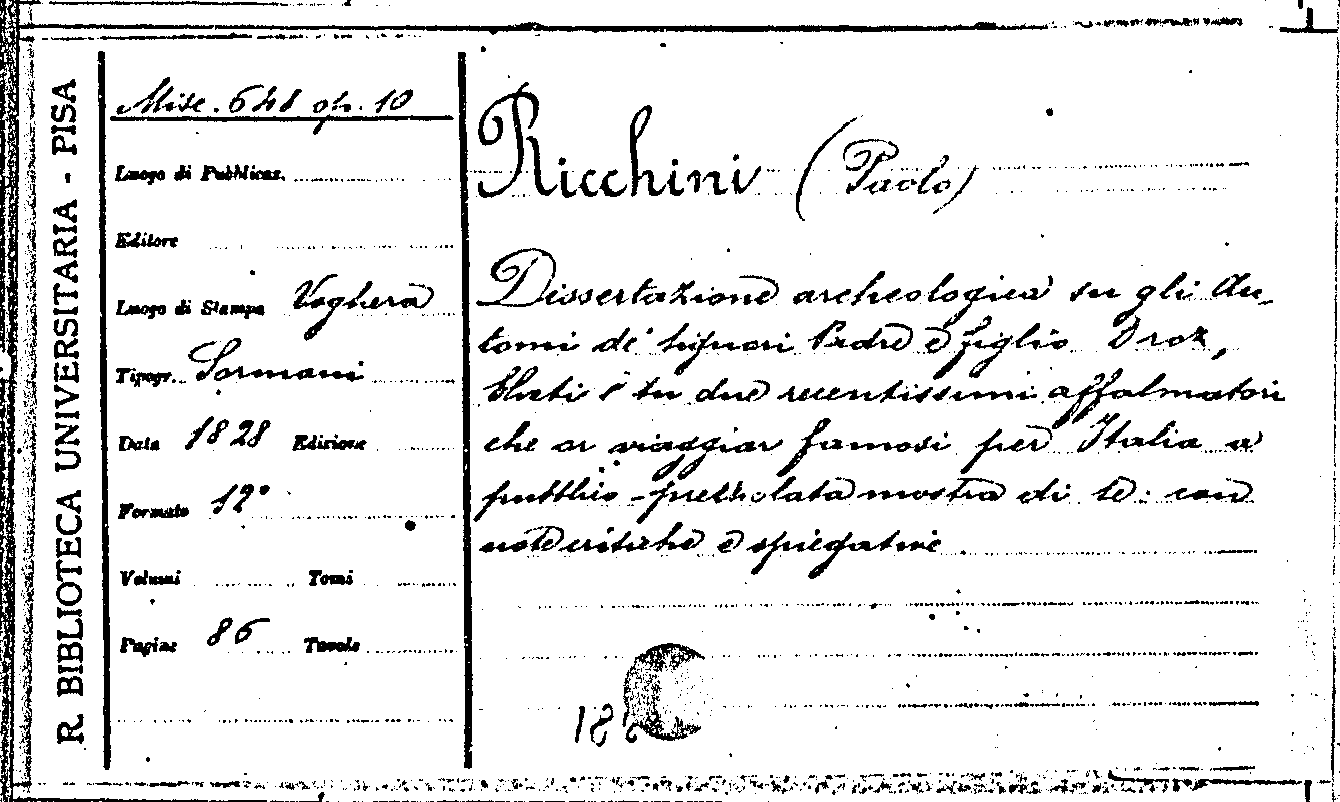 R. BIBLIOTECA UNIVERSITARIA - PISA
Misc. 648 op. 10
Luogo di Pubblicaz.
Editore
Luogo di Stampa Voghera
Tipogr. Sormani
Data 1828 Edizione
Formato 12°
Volumi Tomi
Pagine 86 Tavole
Ricchini (Paolo)
Dissertazione archeologica su gli Au-
tomi de' Signori Padre e figlio Droz,
e su due recentissimi
che or viaggiar famosi per Italia a
pubblico mostra di se: con
note critiche e spiegative